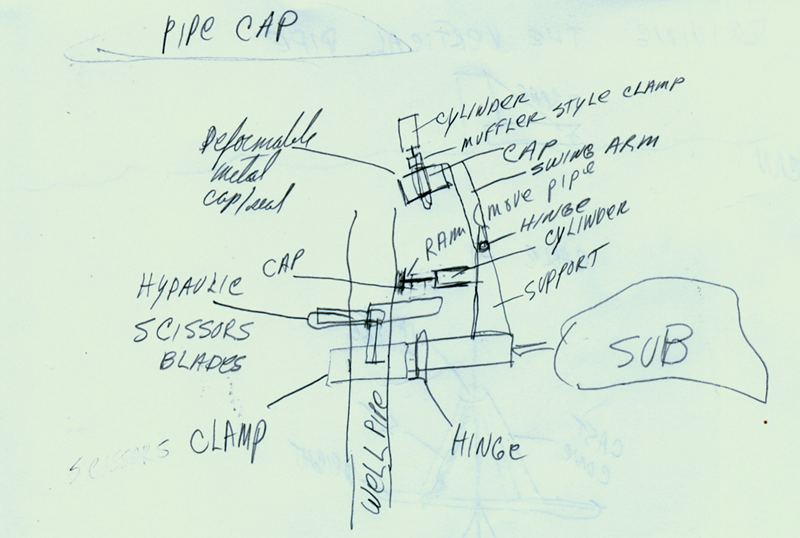 PIPE CAP
CYLINDER
MUFFLER STYLE CLAMP
CAP
SWING ARM
Deformable
metal
cap/seal
move pipe
HINGE
CYLINDER
RAM
SUPPORT
CAP
HYPAULIC
SCISSORS
BLADES
SUB
CLAMP
WELL PIPE
HINGE
SCISSORS